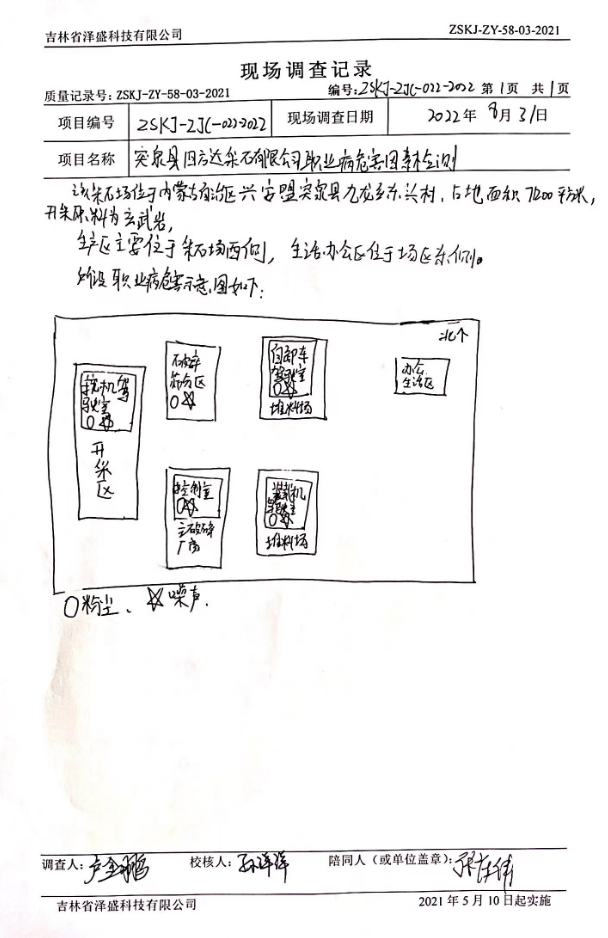 吉林省泽盛科技有限公司 ZSKJ-ZY-58-03-2021
现场调查记录
质量记录号: ZSKJ-ZY-58-03-2021 编号: ZSKJ-ZJC-022-2022 第1页 共1页
项目编号 ZSKJ-ZJC-022-2022 现场调查日期 2022年8月31日
项目名称 突泉县四方达采石有限公司职业病危害因素检测
该采石场位于内蒙古自治区兴安盟突泉县九龙乡东兴村,占地面积7200平方米,
开采原料为玄武岩,
生产区主要位于采石场西侧,生活办公区位于场区东侧。
职业病危害示意图如下:
北个
挖机驾
驶室
开采区
石破碎
筛分区
自卸车
驾驶室
堆料场
办公
生活区
控制室
主破碎
厂房
装载机
驾驶室
堆料场
○粉尘、☆噪声.
调查人: 校核人: 陪同人(或单位盖章):
吉林省泽盛科技有限公司 2021年5月10日起实施